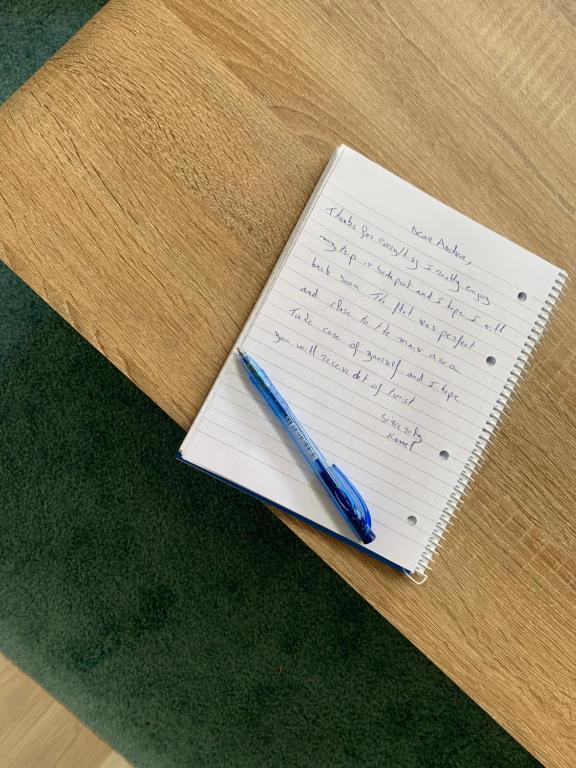 Dear Andrea,
Thanks for everything I really enjoy
my trip in budapest and I hope I will
back soon. The flat was perfect
and close to the main area
Take care of yourself and I hope
you will receive lot of turist.
Sincerely
Kamel